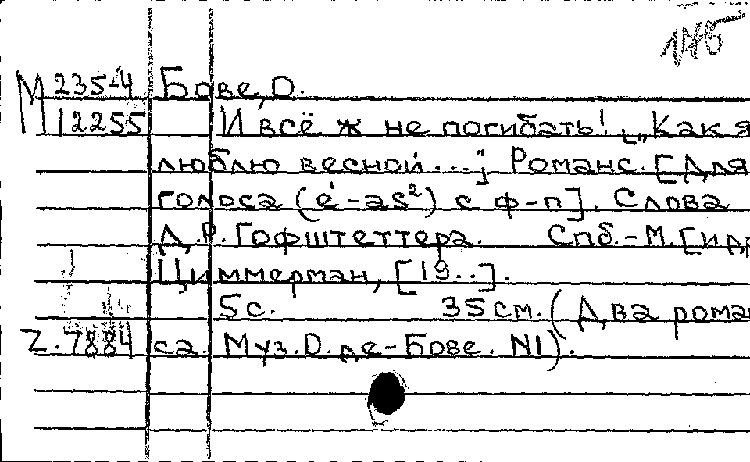 176
М 235-4 Бове, О.
12255 И всё ж не погибать! [„Как я
люблю весной...“]. Романс. [Для
голоса (e¹-as²) с ф-п]. Слова
Д.Р. Гофштеттера. Спб.-М. [и др.
Циммерман, [19..].
5 с. 35 см. (Два роман
Z.7884 са. Муз. О. де-Бове. N1).